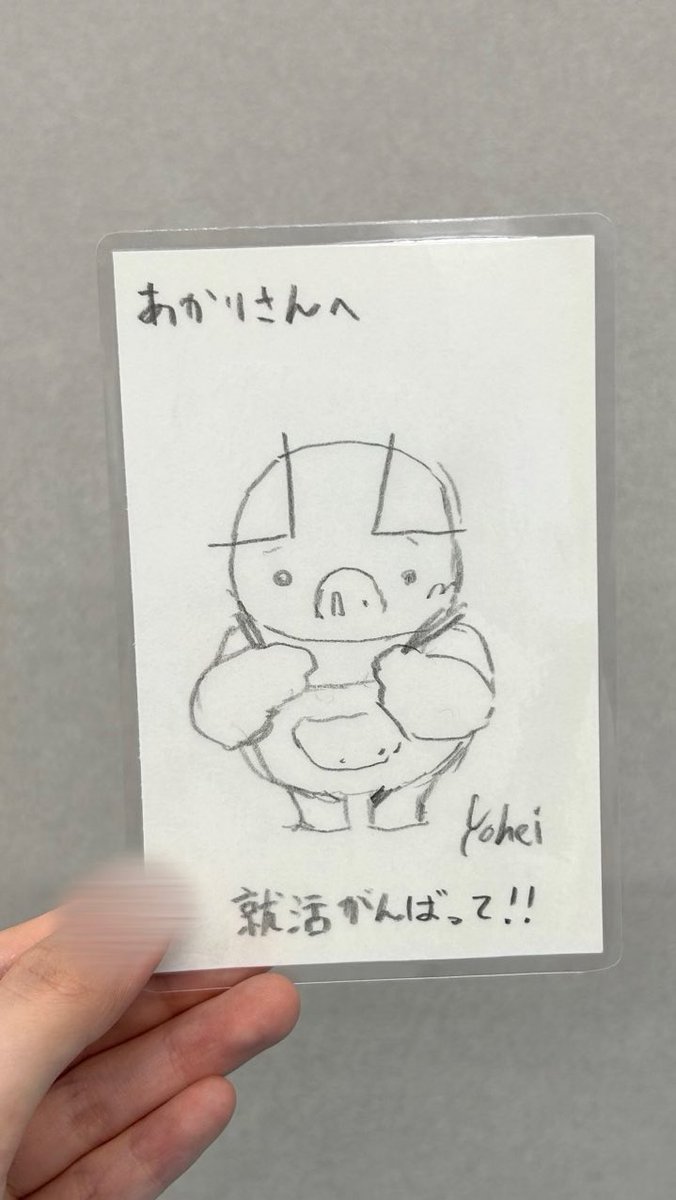 あかりさんへ
Yohei
就活がんばって!!